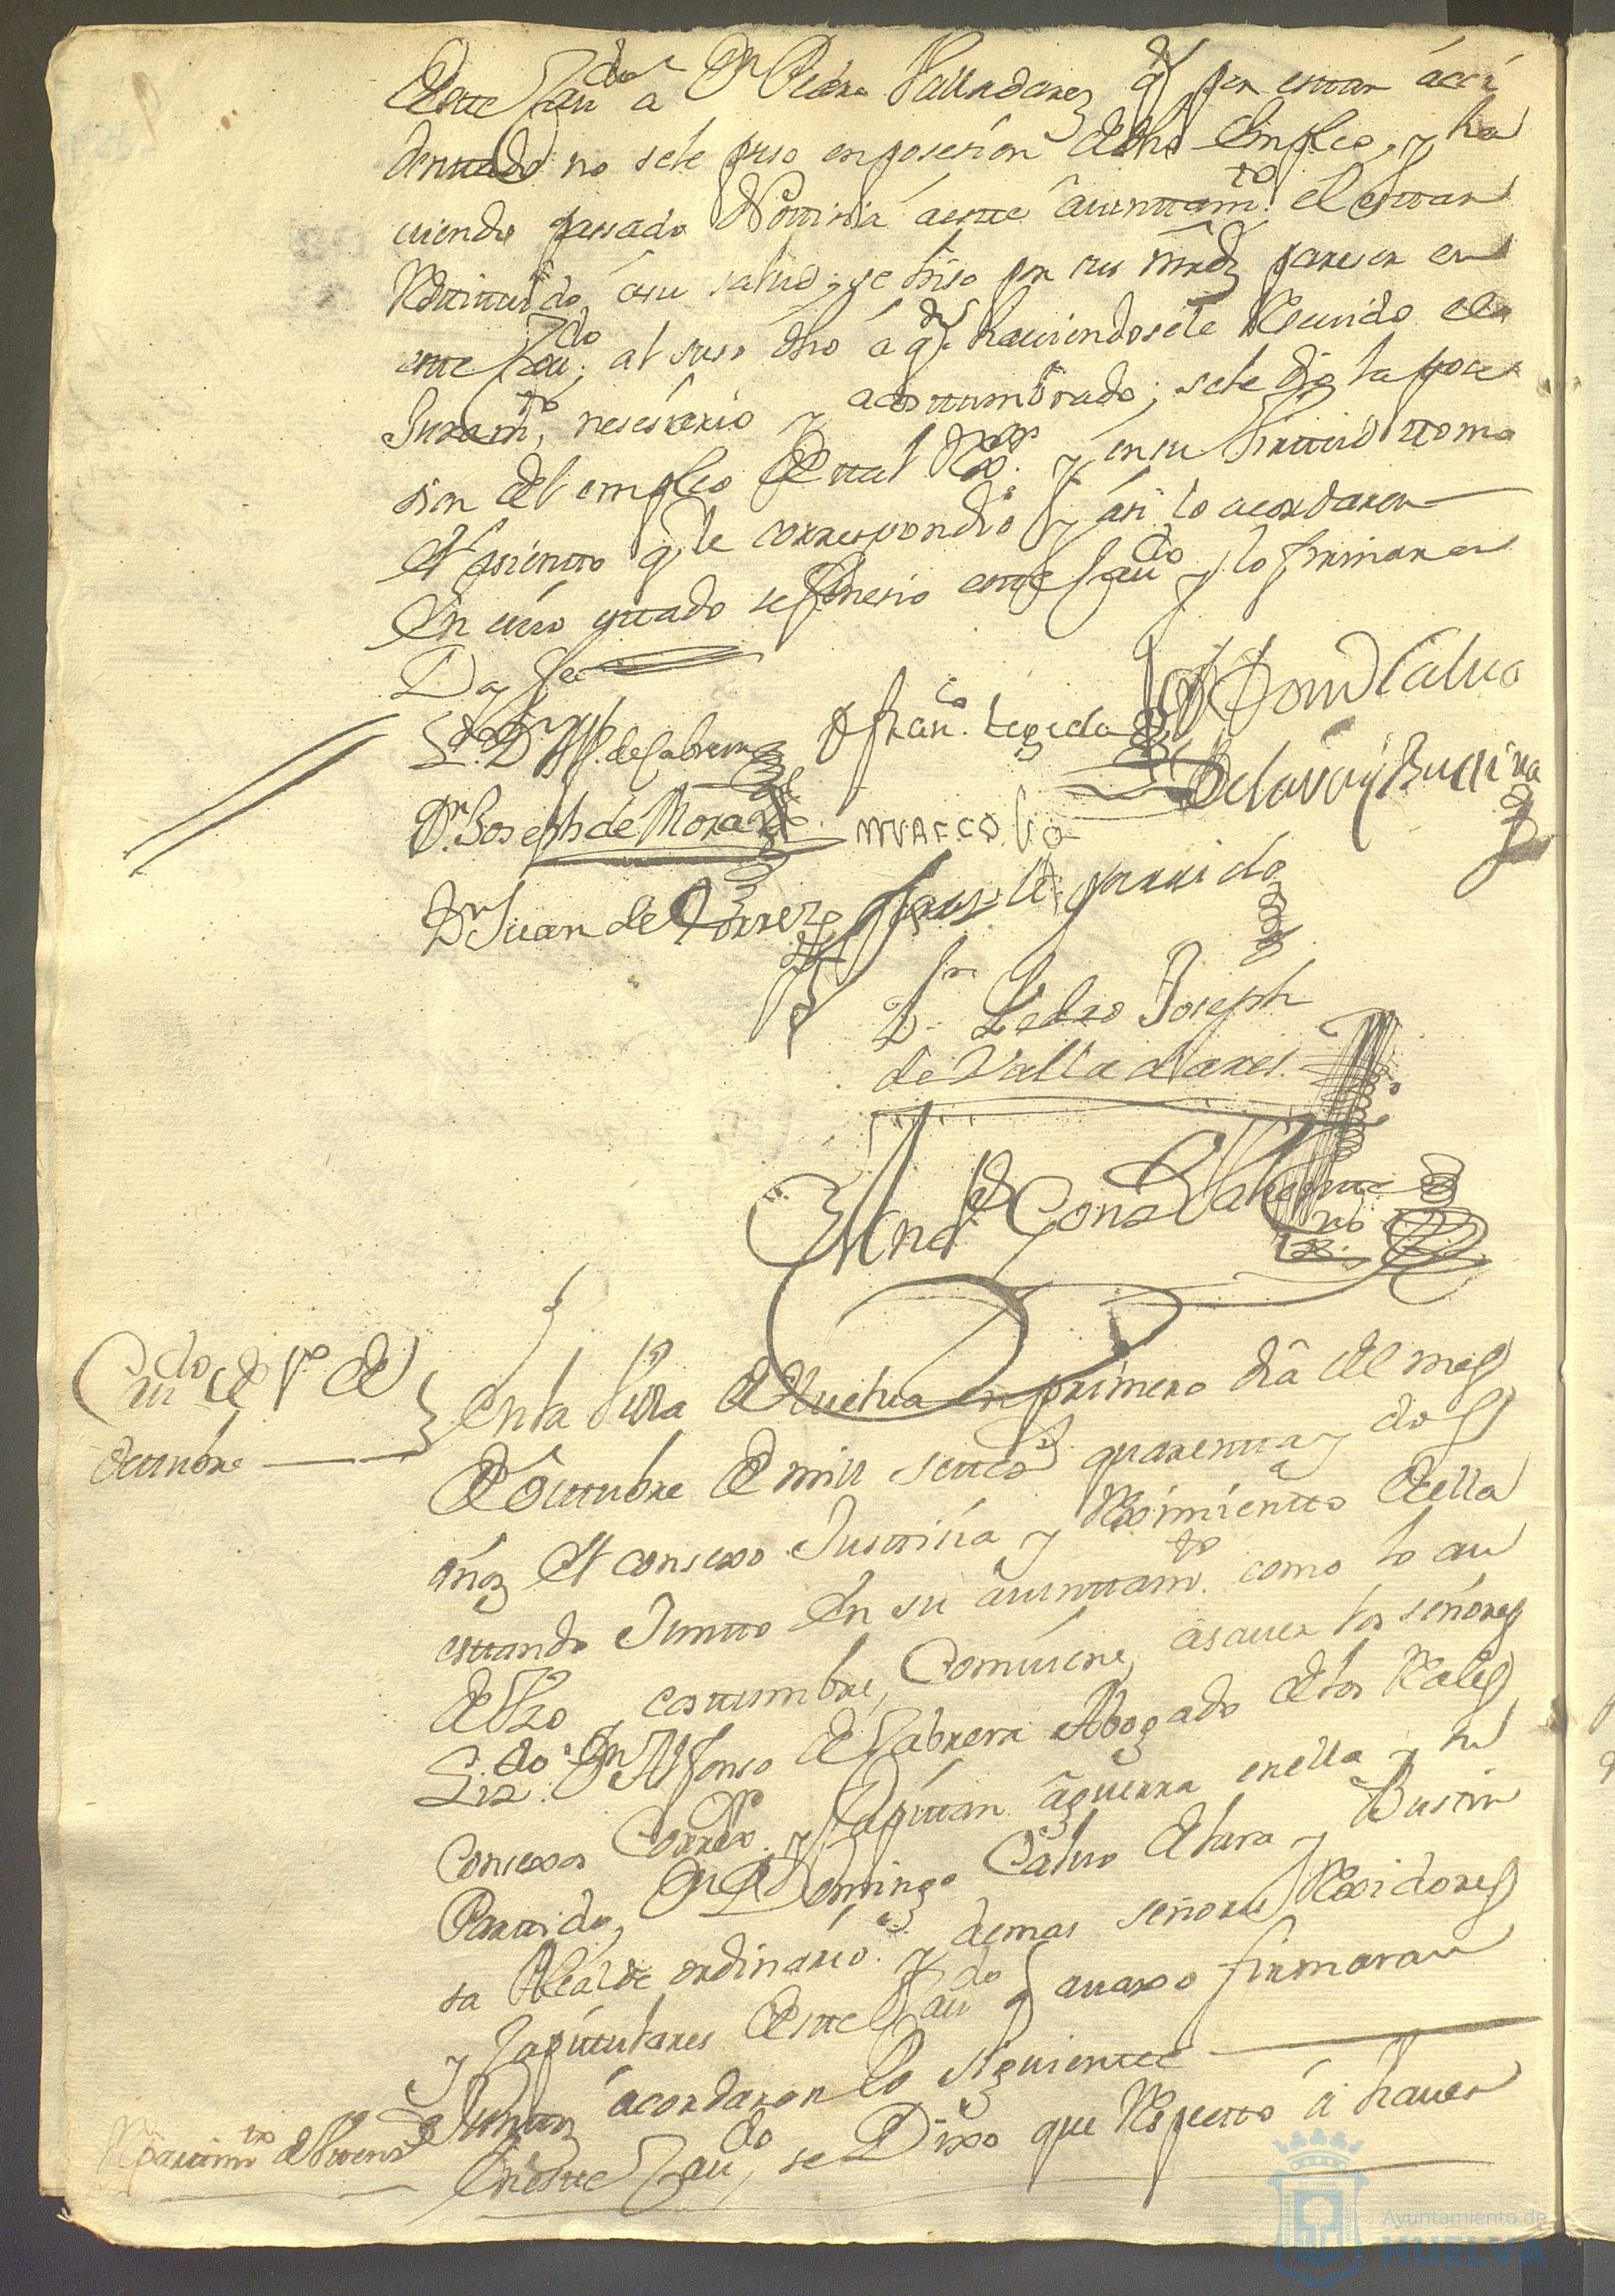 deste Caudo a Dn Pedro Valladarez q por estar acci
dentado no se le puso en posesion dedho empleo, y ha
viendo passado Notticia a este aiunttamto el esttar
Resttituido, asu salud, se hiso por sus mrdz pareser en
este Caudo; al suso dho á qn haviendosele Reciuido el
Juramto, nesesario y acosttumbrado; se le dio la poce
sion del empleo de ttal Rexor y en su virttud ttomo
el asientto q le correspondio y asi lo acordaron
En cuio esttado se fenesio estte Caudo y lo firmaron
Doy fee
Ldo Dn Alfo. de Cabrera
D franco. tegeda
Domo Calvo
Delara y Bustina
Dn Joseph de Mora
Dn Juan de Torrez
garrido
Dn Pedro Joseph
de Valladares
Andrs Gonz
Caudo de 1o de
Octtubre
En la Villa de Huelva en primero dia del mes
de Octtubre de mill settesos quarentta y dos
años el consexo Justticia y Reximientto de ella
esttando Juntto en su aiunttamto como lo an
de Vso y costtumbre, Combiene, asaver los señores
Lizdo Dn Alfonso de Cabrera Abogado de los Rales
Consexos Correxor y Capittan aguerra en ella y su
Parttido, Dn Domingo Calvo de lara y Busttin
sa Alcalde ordinario y demas señores Rexidores
y Capittulares de estte Caudo q avaxo firmaran
y Junttos acordaron lo siguientte
Repartimto
En estte Caudo, se Dixo que Respectto á haver
Ayuntamiento de
HUELVA